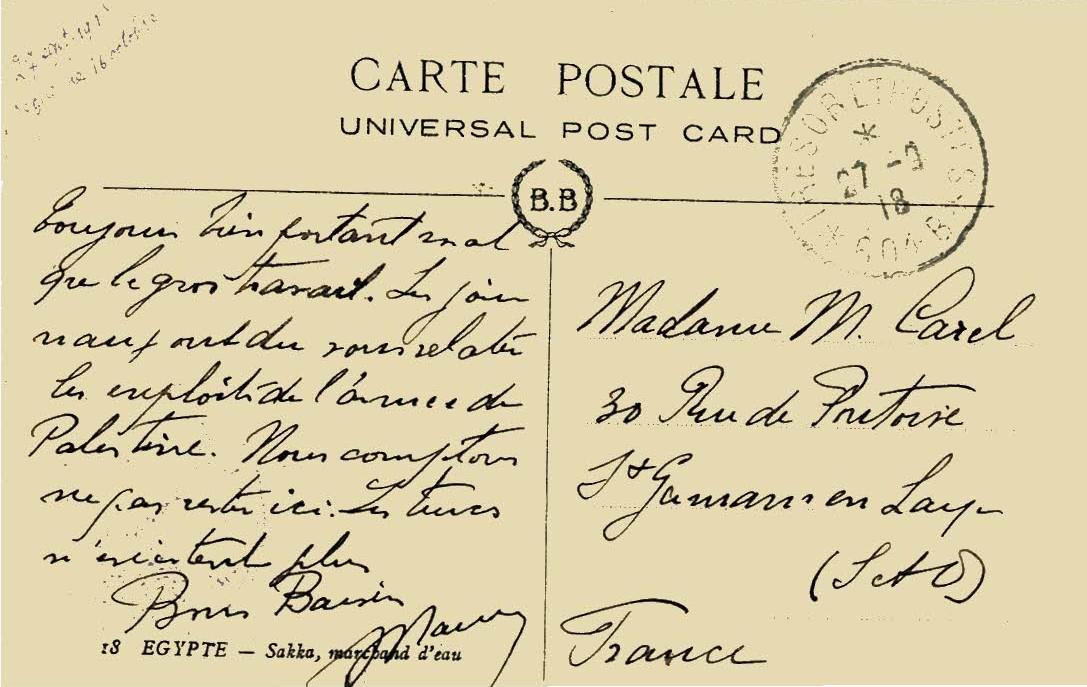 27 sept. 1918
reçue le 16 octobre
CARTE POSTALE
UNIVERSAL POST CARD
TRESOR ET POSTES
27 -9
18
B.B
Toujours bien portant mal
gré le gros travail. Les jour
naux ont du vous relater
les exploits de l'armée de
Palestine. Nous comptons
ne pas rester ici. Les turcs
n'existent plus
Bons Baisers
18 EGYPTE — Sakka, marchand d'eau
Madame M. Carel
30 Rue de Pontoise
St Germain en Laye
(S et O)
France